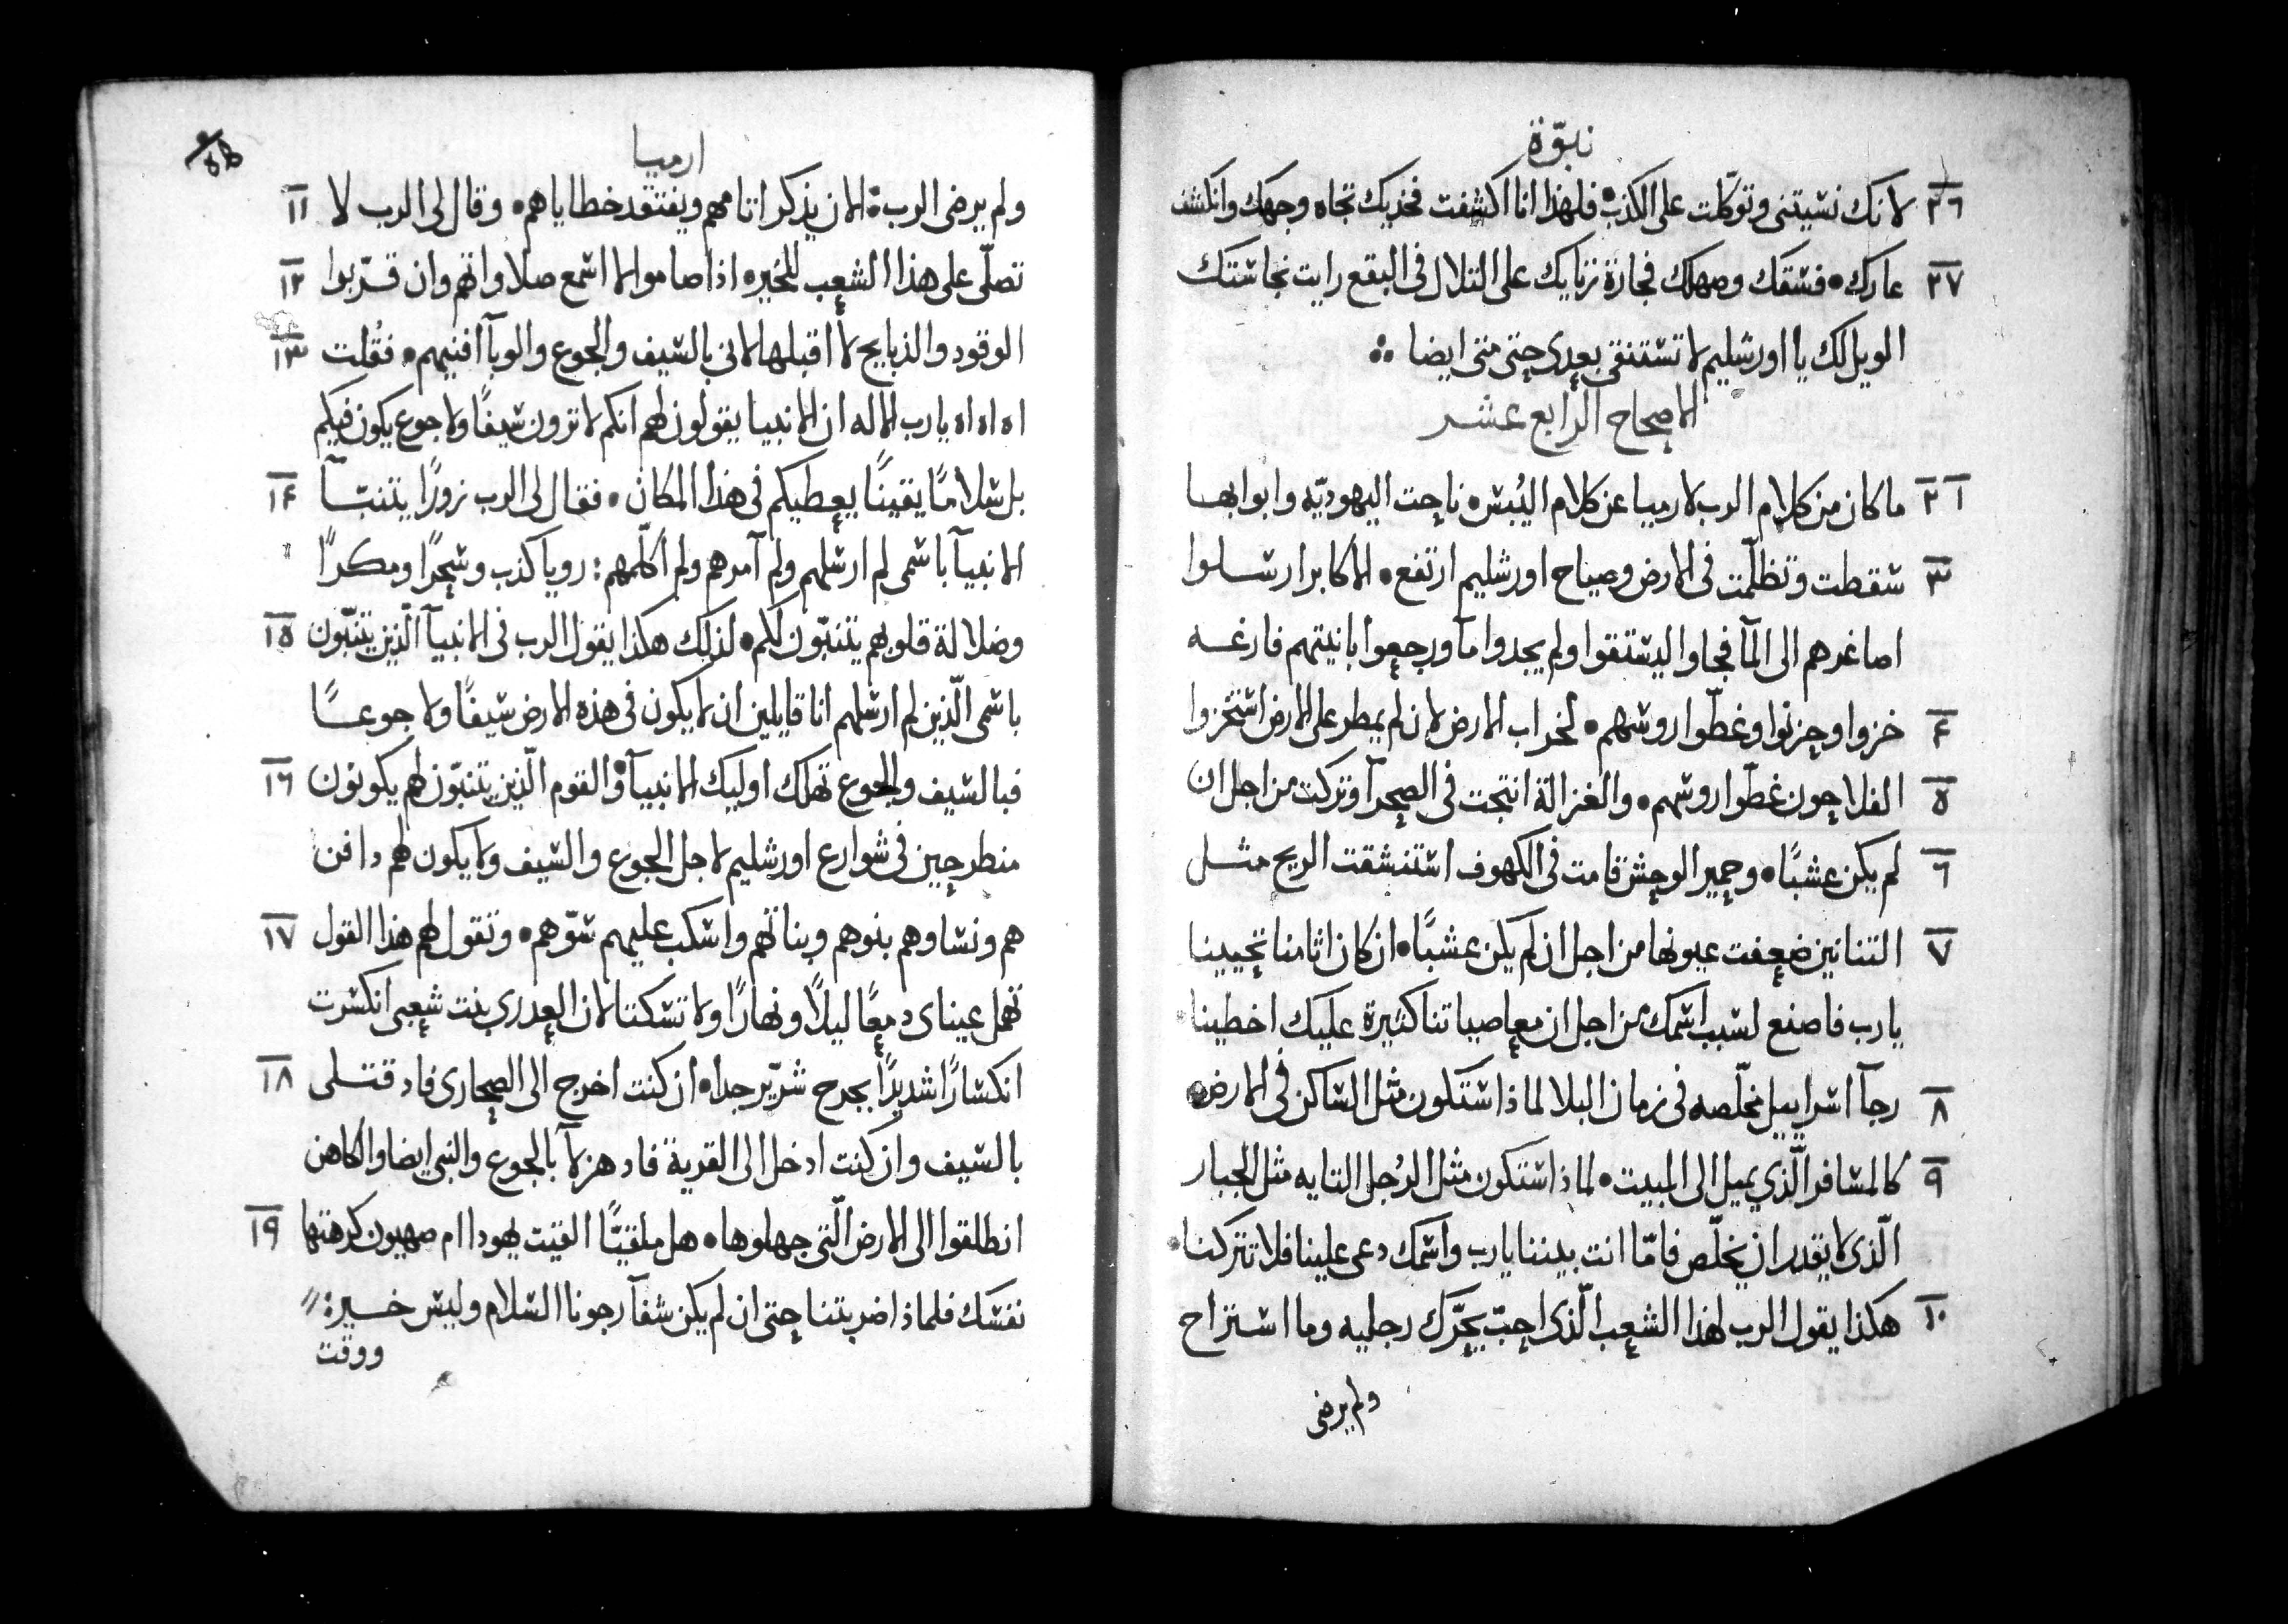 نبوّة
٢٦ لانك نسيتنى وتوكّلت على الكذب۰ فلهذا انا اكشفت فخذيك تجاه وجهك وانكشف
٢٧ عارك۰ فسقك وصهلك فجازة زنايك على التلال فى البقع رايت نجاستك
الويل لك يا اورشليم لا تستنقى بعدى حتى متى ايضا
الاصحاح الرابع عشر
١ ٢ ما كان من كلام الرب لارميا عن كلام اليُبس۰ ناحت اليهوديّه وابوابها
٣ سقطت وتظلّمت فى الارض وصياح اورشليم ارتفع۰ الاكابر ارسلوا
اصاغرهم الى المآ فجاوا ليستقوا ولم يجدوا مآ ورجعوا بانيتهم فارغه
٤ خزوا وحزنوا وغطّوا روسهم۰ لخراب الارض لان لم يمطر على الارض استخزوا
٥ الفلاحون غطّوا روسهم۰ والغزالة انتجت فى الصحرآ وتركت من اجل ان
٦ لم يكن عشبًا۰ وحمير الوحش قامت فى الكهوف استنشقت الريح مثل
٧ التنانين ضعفت عيونها من اجل ان لم يكن عشبًا۰ ان كان اثامنا تجيبنا
يا رب فاصنع لسبب اسمك من اجل ان معاصياتنا كثيرة عليك اخطينا۰
٨ رجآ اسراييل مخلّصه فى زمان البلا لماذا ستكون مثل الساكن فى الارض۰
٩ كالمسافر الّذي يميل الى المبيت۰ لماذا ستكون مثل الرُجل التايه مثل الجبار
الّذى لا يقدر ان يخلّص فامّا انت بيننا يا رب واسمك دعى علينا فلا تتركنا۰
١٠ هكذا يقول الرب لهذا الشعب الّذى احبّ يحرّك رجليه وما استراح
ولم يرضى
ارميا
ولم يرضى الرب: الان يذكر اتامهم ويفتقد خطاياهم۰ وقال لى الرب لا ١١
تصلّى على هذا الشعب للخير۰ اذا صاموا لا اسمع صلاواتهم وان قرّبوا ١٢
الوقود والذبايح لا اقبلها لانى بالسيف والجوع والوبآ افنيهم۰ فقُلت ١٣
اه اه اه يا رب الاله ان الانبيا يقولون لهم انكم لا ترون سيفًا ولا جوع يكون فيكم
بل سلامًا يقينًا يعطيكم فى هذا المكان۰ فقال لى الرب زورًا يتنبّآ ١٤
الانبيآ باسمى لم ارسلهم ولم آمرهم ولم اكلّمهم: رويا كذب وسحرًا ومكرًا
وضلالة قلوبهم يتنبّون لكم۰ لذلك هكذا يقول الرب فى الانبيآ الّذين يتنبّون ١٥
باسمى الّذين لم ارسلهم انا قايلين ان لا يكون فى هذه الارض سيفًا ولا جوعًا
فبالسيف والجوع تهلك اوليك الانبيآ۰ والقوم الّذين يتنبّون لهم يكونون ١٦
منطرحين فى شوارع اورشليم لاجل الجوع والسيف ولا يكون لهم دافن
هم ونساوهم بنوهم وبناتهم واسكب عليهم سوّهم۰ وتقول لهم هذا القول ١٧
تهمل عيناى دمعًا ليلًا ونهارًا ولا تسكتا لان العدرى بنت شعبى انكسرت
انكسارًا شديدًا بجرح شرّير جدا۰ ان كنت اخرج الى الصحارى فاد قتلى ١٨
بالسيف وان كنت ادخل الى القرية فاد هزلآ بالجوع والنبى ايضا والكاهن
انطلقوا الى الارض الّتى جهلوها۰ هل ملقيًّا القيت يهودا ام صهيون كرهتها ١٩
نفسك فلماذا ضربتنا حتى ان لم يكن شفآ رجونا السلام وليس خير:
ووقت